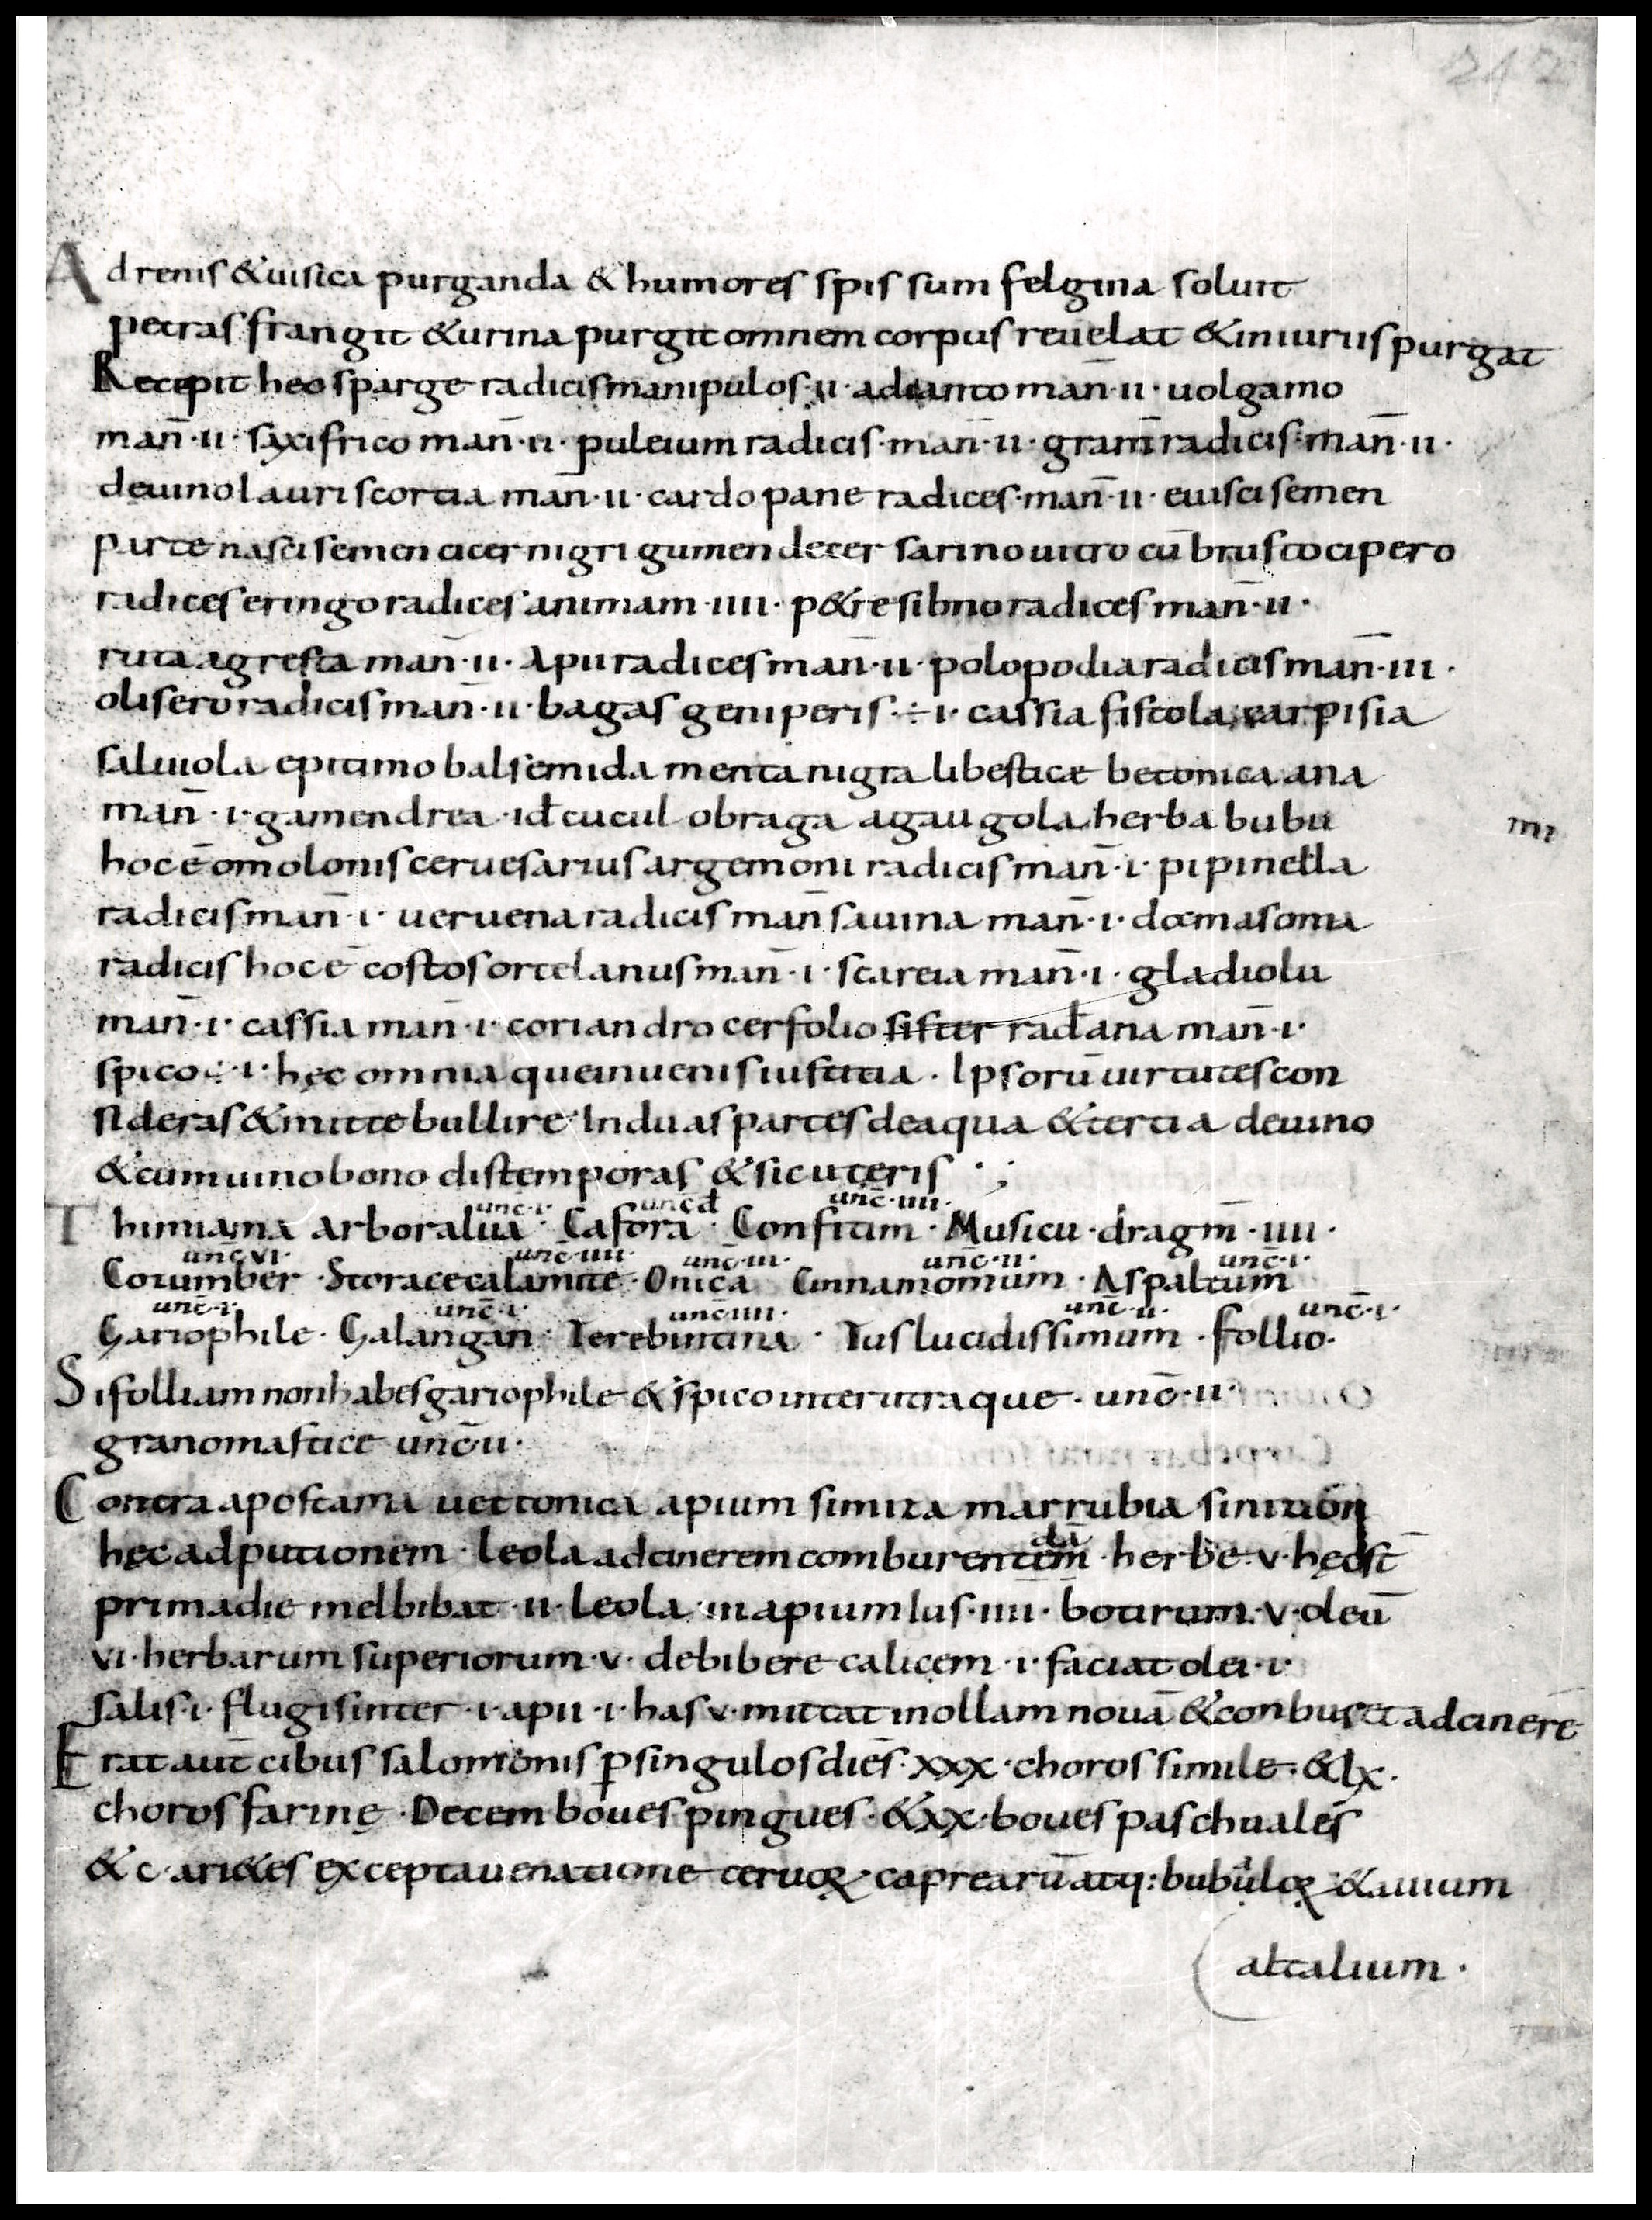 212
Ad renis & uisica purganda & humores spissum felgina soluit
petras frangit & urina purgit omnem corpus reuelat & iniuriis purgat
Recepit heo sparge radicis manipulos·ii· adianto man̄·ii· uolgamo
man̄·ii· saxifrico man̄·ii· puleium radicis·man̄·ii· gram̄ radicis·man̄·ii·
de uino lauri scortia man̄·ii· cardo pane radices·man̄·ii· euisci semen
parte nasci semen cicer nigri gumen decer sarino uitro cū brusco cipero
radices eringo radices animam·iiii· p&re sibno radices man̄·ii·
ruta agresta man̄·ii· Apii radices man̄·ii· polopodia radicis man̄·iii·
olisero radicis man̄·ii· bagas geniperis·÷·i· cassia fistola, sarpisia
saluiola epitimo balsemida menta nigra libesticæ betonica ana
man̄·i· gamendrea·id cucul obraga agaugola herba bubu
mi
hoc ē omolonis ceruesarius argemoni radicis man̄·i· pipinella
radicis man̄·i· ueruena radicis man̄ sauina man̄·i· docmasoma
radicis hoc ē costos ortelanus man̄·i· scareia man̄·i· gladiolu
man̄·i· cassia man̄·i· coriandro cerfolio sister rad ana man̄·i·
spico ÷·i· hęc omnia que inuenis iustitia. Ipsorū uirtutes con
sideras & mitte bullire In duas partes de aqua & tertia de uino
& cum uino bono distemporas & sic uteris ·;
unc̄·i· unc̄ d unc̄·iiii·
Thimiama arboralua· Cafora· Confitum· Musicu·dragm̄·iiii·
unc̄ vi· unc̄·iiii· unc̄·iii· unc̄·ii· unc̄·i·
Cozumber·Storace calamite·Onica Cinnamomum·Aspaltum
unc̄·i· unc̄·i· unc̄·iiii· unc̄·ii· unc̄·i·
Gariophile·Galangan·Terebintina·Tus lucidissimum·follio·
Si folliam non habes gariophile & spico inter utraque· unc̄·ii·
grano mastice unc̄ ii·
Contra apostama uettonica apium simiza marrubia sinizion
hęc ad putionem· leola ad cinerem comburentem·herbe·v·hęc st̄
primadie mel bibat·ii·leola·iii apium lus·iiii· botirum·v·oleū
vi·herbarum superiorum·v· debibere calicem·i· faciat olei·i·
salis·i· flugisinter·i·apii·i·has v·mittat in ollam nouā & conburat ad cinerē
Erat aut̄ cibus salomonis p singulos dies·xxx·choros simile·&lx·
choros farinę·Decem boues pingues·&xx·boues paschuales
& c·ari&es excepta uenatione ceruoꝝ·caprearū atq: bubuloꝝ & auium
altalium·